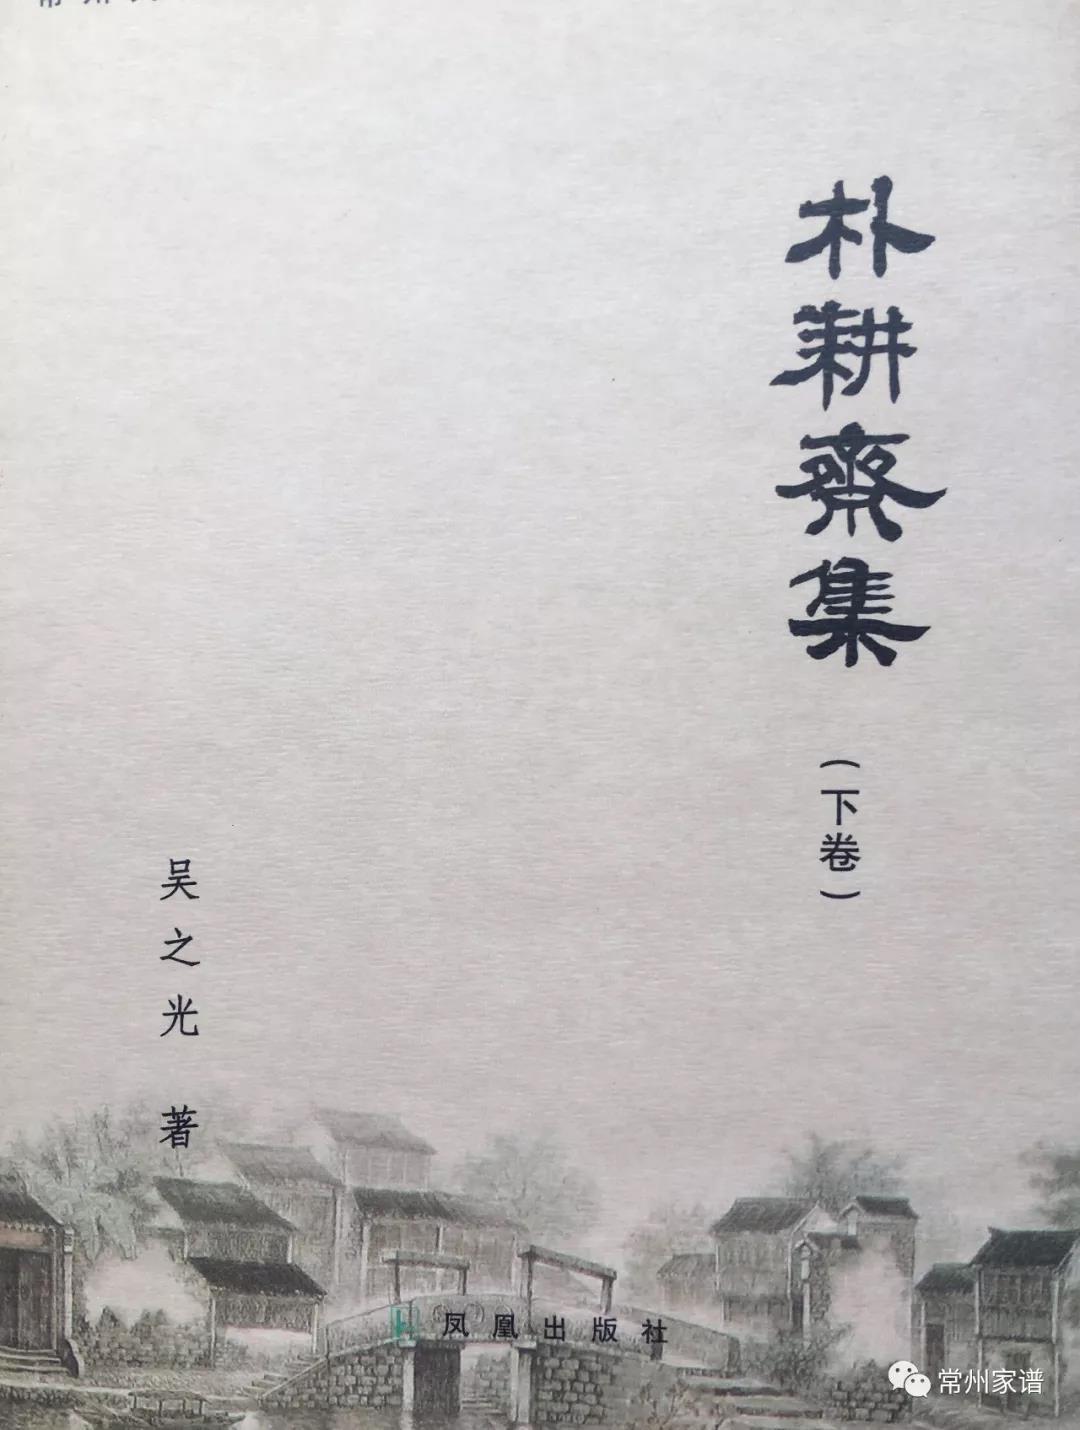 朴耕斋集
（下卷）
吴之光 著
凤凰出版社
常州家谱